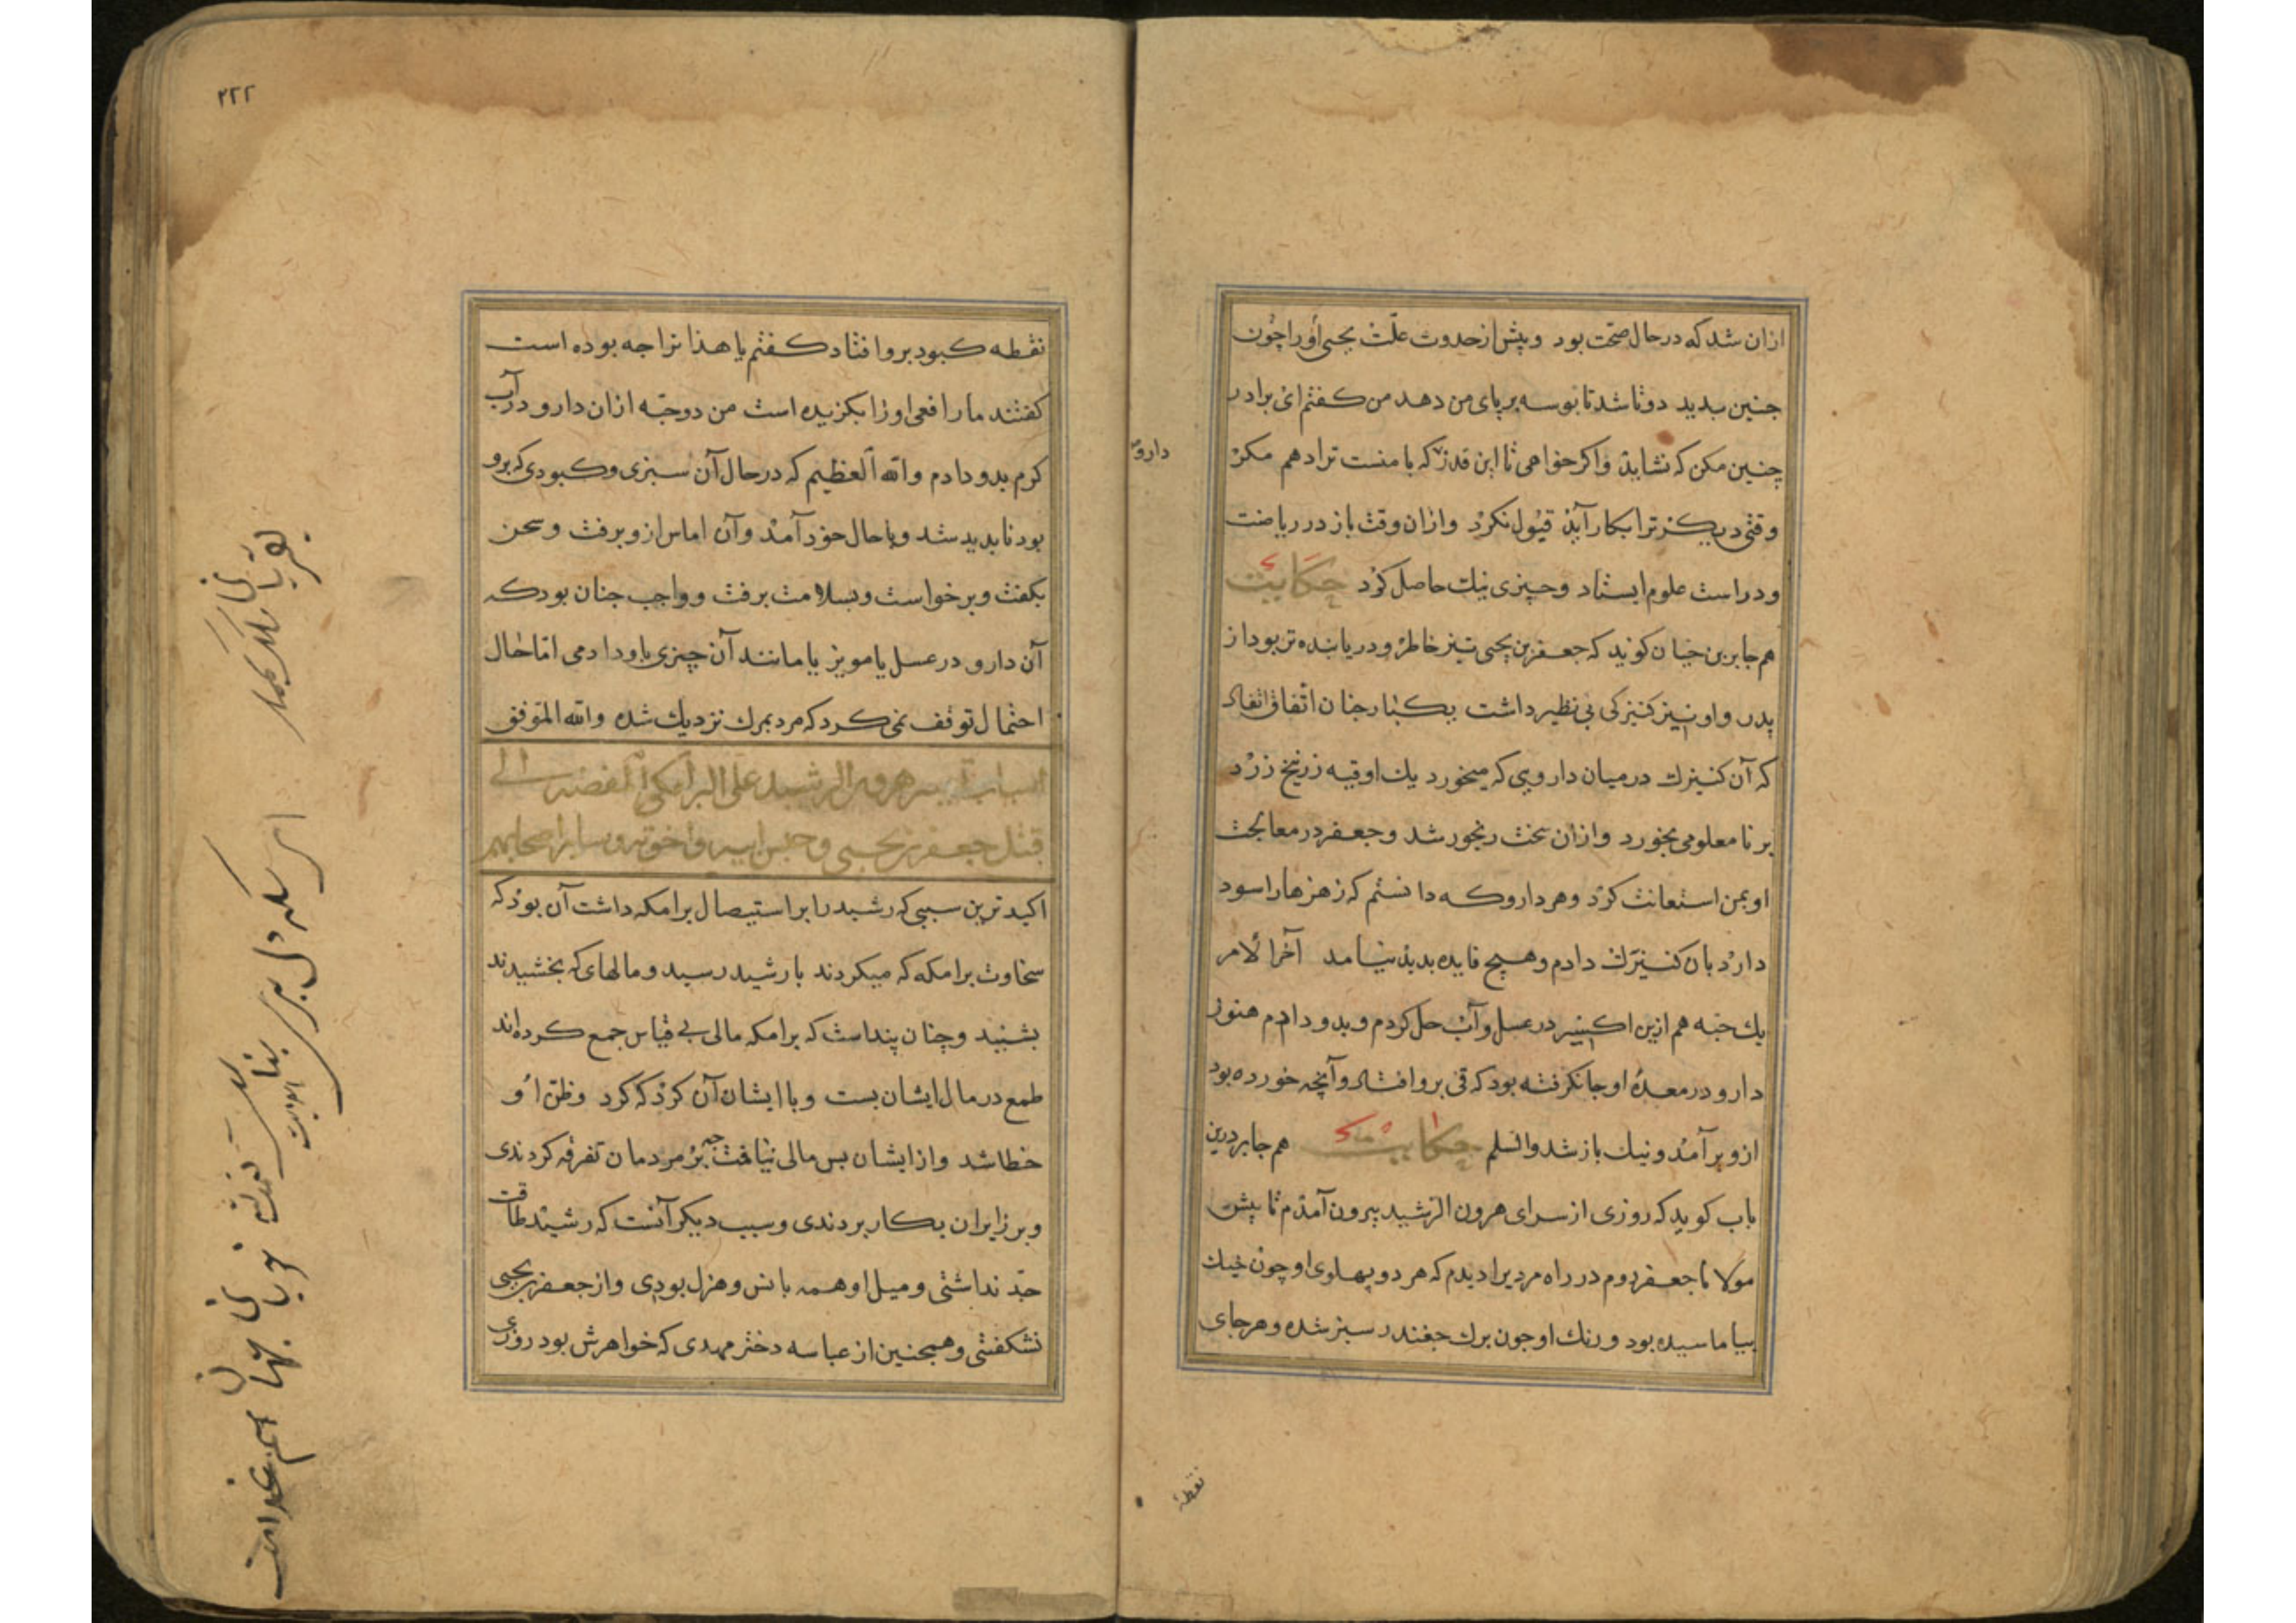 ازان شد که در حال صحّت بود و پیش از حدوث علّت یحیی او را چون
جنین بدید دوتا شد تا بوسه بر پای من دهد من کفتم ای برادر
چنین مکن که نشاید و اکر خواهی تا این قدر که با منست ترا دهم مکر
دارو
وقتی دیکر ترا بکار آید قبول نکرد و ازان وقت باز در ریاضت
و دراست علوم ایستاد و چیزی نیک حاصل کرد حکایت
هم جابر بن حیان کوید که جعفر بن یحیی تیز خاطر و دریابنده تر بود از
پدر و او نیز کنیزکی بی نظیر داشت یکبار جنان اتّفاق افتاد
که آن کنیزک در میان دارویی که میخورد یک اوقیه زرنیخ زرد
بر نا معلومی بخورد و ازان سخت رنجور شد و جعفر در معالجت
او بمن استعانت کرد و هر دارو که دانستم که زهرها را سود
دارد بان کنیزک دادم و هیچ فایده بدید نیامد آخر الامر
یک حبّه هم ازین اکسیر در عسل و آب حل کردم و بدو دادم هنوز
دارو در معدهٔ او جا نکرفته بود که قی برو افتاد و آنچه خورده بود
ازو بر آمد و نیک باز شد والسلم حکایت هم جابر درین
باب کوید که روزی از سرای هرون الرشید بیرون آمدم تا پیش
مولانا جعفر روم در راه مردیرا دیدم که هر دو پهلوی او چون خیک
بیاماسیده بود و رنک او جون برک جغندر سبز شده و هر جای
نقطهٔ
٢٢٢
نقطه کبود برو افتاد کفتم یا هذا ترا جه بوده است
کفتند مار افعی او را بکزیده است من دو حبّه ازان دارو در آب
کرم بدو دادم والله العظیم که در حال آن سبزی و کبودی که برو
بود نابدید شد و با حال خود آمد و آن اماس ازو برفت و سخن
بکفت و برخواست و بسلامت برفت و واجب جنان بود که
آن دارو در عسل یا مویز یا مانند آن چیزی باو دادمی امّا حال
احتمال توقف نمی کرد که مرد بمرک نزدیک شده والله الموفق
هرون الرشید علی البرامکی المفضیه الی
قتل جعفر بن یحیی و حبس ابیه و اخوته و سایر اصحابهم
اکید ترین سببی که رشید را بر استیصال برامکه داشت آن بود که
سخاوت برامکه که میکردند با رشید رسید و مالهای که بخشیدند
بشنید و چنان پنداشت که برامکه مالی بی قیاس جمع کرده اند
طمع در مال ایشان بست و با ایشان آن کرد که کرد و ظنّ او
خطا شد و از ایشان بس مالی نیافت چه بر مردمان تفرقه کردندی
و بر زایران بکار بردندی و سبب دیکر آنست که رشید طاقت
جدّ نداشتی و میل او همه بانس و هزل بودی و از جعفر یحیی
نشکفتی و همجنین از عباسه دختر مهدی که خواهرش بود روزی